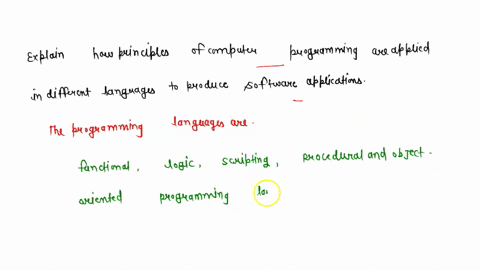 Explain how principles of computer programming are applied
in different languages to produce software applications.
The programming languages are.
functional, logic, scripting, procedural and object-
oriented programming la